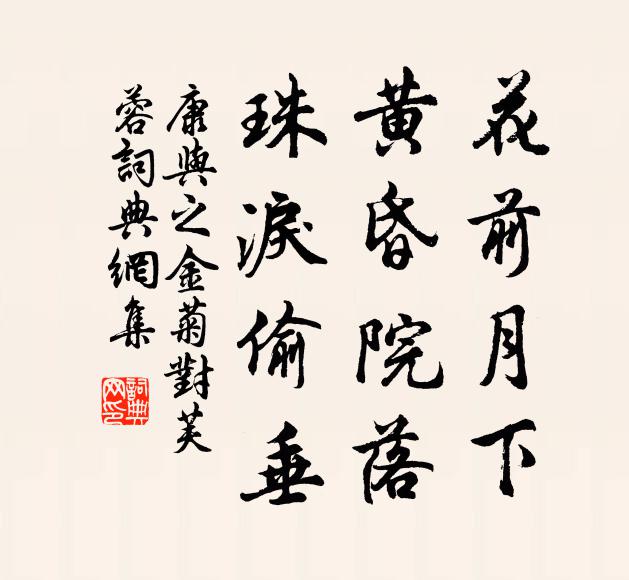 花前月下
黄昏院落
珠淚偷垂
康與之金菊對芙
蓉詞典網集
詞典
网印